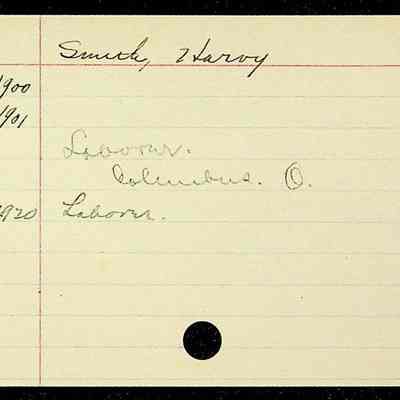 Smith, Harvy
1900
1901
Laborer.
Columbus. O.
1920 Laborer.